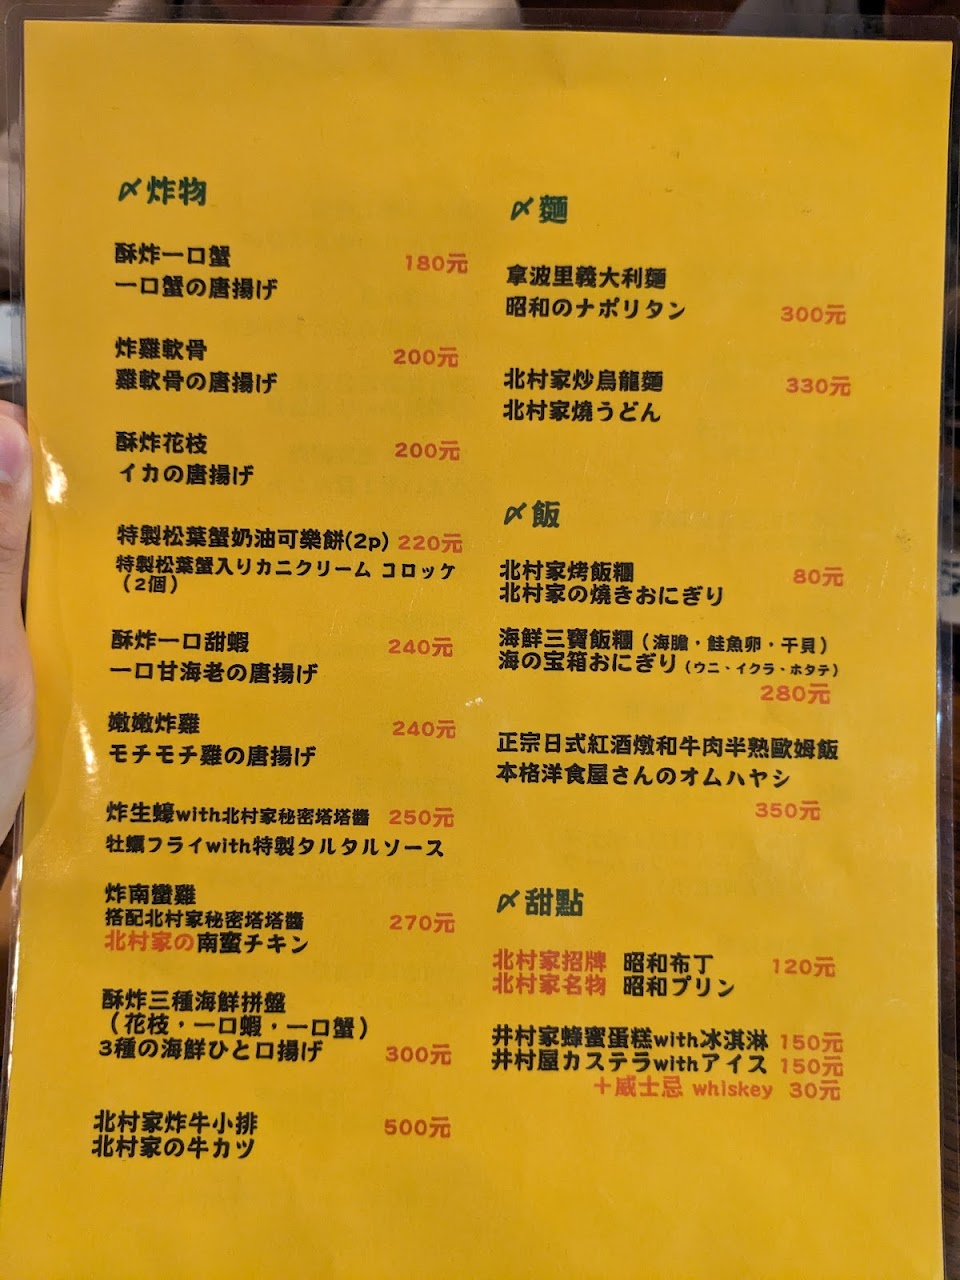 〆炸物
酥炸一口蟹 180元
一口蟹の唐揚げ
炸雞軟骨 200元
雞軟骨の唐揚げ
酥炸花枝 200元
イカの唐揚げ
特製松葉蟹奶油可樂餅(2p) 220元
特製松葉蟹入りカニクリーム コロッケ
(2個)
酥炸一口甜蝦 240元
一口甘海老の唐揚げ
嫩嫩炸雞 240元
モチモチ雞の唐揚げ
炸生蠔with北村家秘密塔塔醬 250元
牡蠣フライwith特製タルタルソース
炸南蠻雞
搭配北村家秘密塔塔醬 270元
北村家の南蛮チキン
酥炸三種海鮮拼盤
(花枝・一口蝦・一口蟹)
3種の海鮮ひと口揚げ 300元
北村家炸牛小排 500元
北村家の牛カツ
〆麵
拿波里義大利麵
昭和のナポリタン 300元
北村家炒烏龍麵 330元
北村家燒うどん
〆飯
北村家烤飯糰 80元
北村家の燒きおにぎり
海鮮三寶飯糰(海膽・鮭魚卵・干貝)
海の宝箱おにぎり(ウニ、イクラ、ホタテ)
280元
正宗日式紅酒燉和牛肉半熟歐姆飯
本格洋食屋さんのオムハヤシ
350元
〆甜點
北村家招牌 昭和布丁 120元
北村家名物 昭和プリン
井村家蜂蜜蛋糕with冰淇淋 150元
井村屋カステラwithアイス 150元
＋威士忌 whiskey 30元